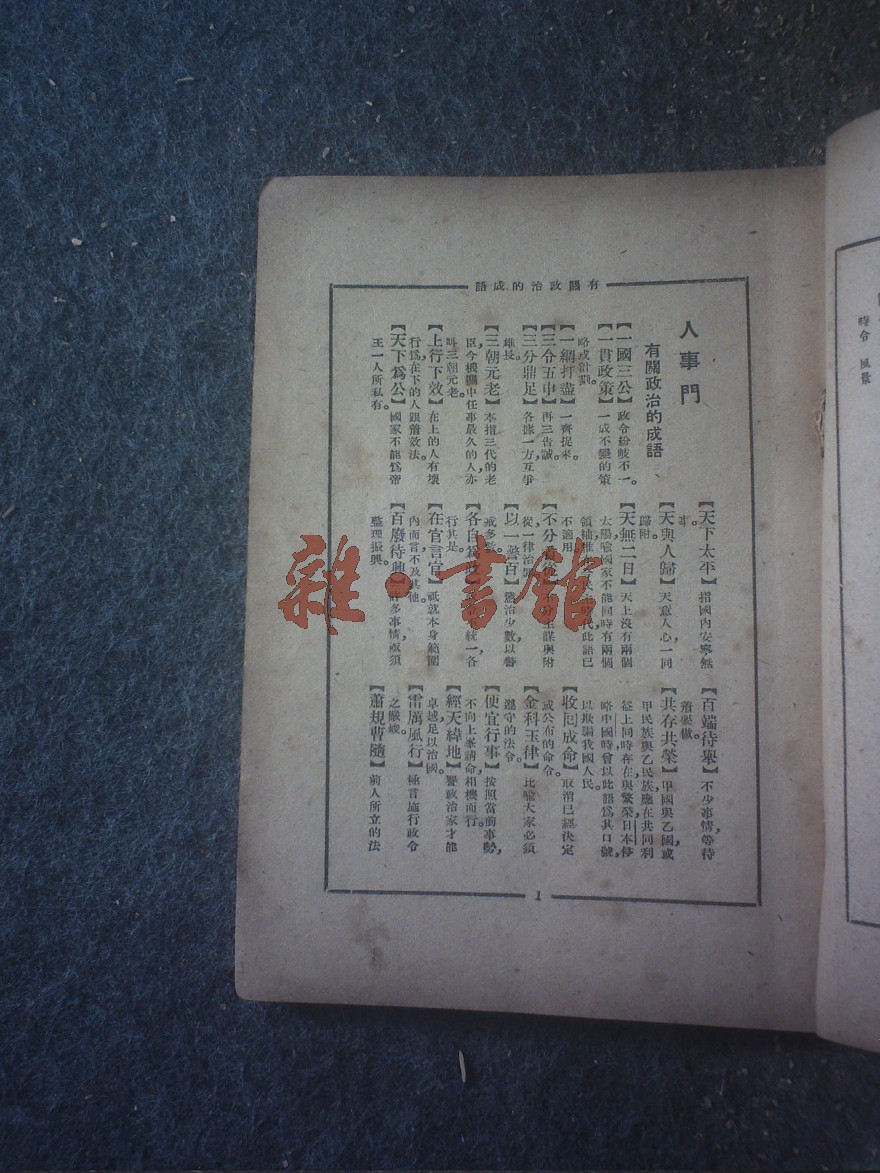 有關政治的成語
人事門
有關政治的成語
【一國三公】政令紛歧不一。
【一貫政策】一成不變的策
略或計劃。
【一網打盡】一齊捉來。
【三令五申】再三告誡。
【三分鼎足】各據一方，互爭
雄長。
【三朝元老】本指三代的老
臣，今機關中任事最久的人，亦
叫三朝元老。
【上行下效】在上的人有壞
行爲，在下的人跟着效法。
【天下爲公】國家不能爲帝
王一人所私有。
【天下太平】指國內安寧無
事。
【天與人歸】天意人心，一同
歸附。
【天無二日】天上沒有兩個
太陽，喻國家不能同時有兩個
領袖
時代，此語已
不適用
【不分
主謀與附
從，一律治罪
【以一警百】懲治少數以警
戒多數
【各自爲政】
不統一，各
行其是。
【在官言官】祗就本身範圍
內而言，不及其他。
【百廢待興】許多事情，亟須
整理振興。
【百端待舉】不少事情，等待
着舉做。
【共存共榮】甲國與乙國或
甲民族與乙民族，應在共同利
益上同時存在與繁榮，日本侵
略中國時，曾以此語爲其口號，
以欺騙我國人民。
【收回成命】取消已經決定
或公布的命令。
【金科玉律】比喻大家必須
遵守的法令。
【便宜行事】按照當前事勢，
不向上峯請命，相機而行。
【經天緯地】譽政治家才能
卓越，足以治國。
【雷厲風行】極言施行政令
之嚴峻。
【蕭規曹隨】前人所立的法
1
時令 風景
雜·書館